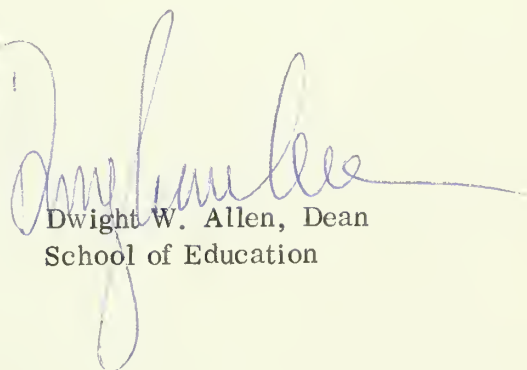 Dwight W. Allen, Dean
School of Education